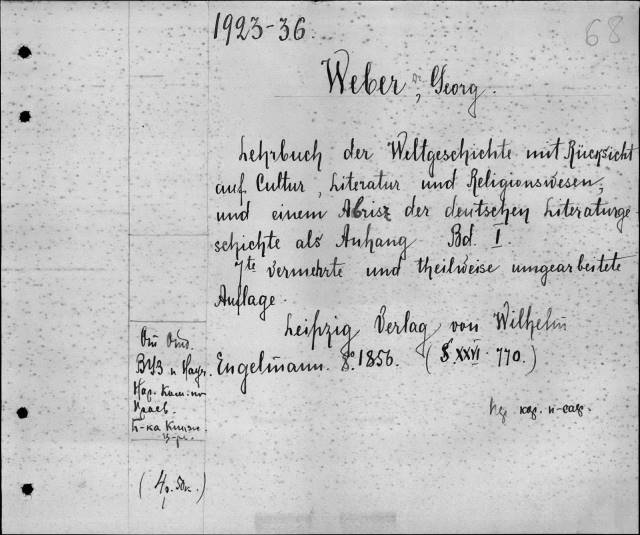 1923-36.
68
Weber, Georg.
Lehrbuch der Weltgeschichte mit Rücksicht
auf Cultur, Literatur und Religionswesen,
und einem Abrisz der deutschen Literaturge
schichte als Anhang Bd. I.
7te vermehrte und theilweise umgearbeitete
Auflage.
Leipzig Verlag von Wilhelm
Engelmann. 8° 1856. (S. XXVI. 770.)
От Отд.
ВУЗ и Науч.
Нар. Ком. по
Просв.
Б-ка Книж.
(4р. 50к.)